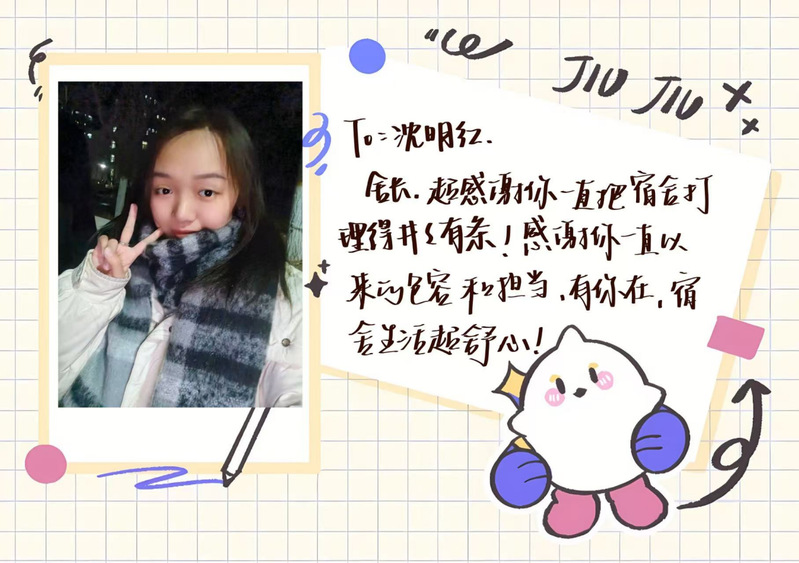 JIU JIU
To:沈明红.
舍长.超感谢你一直把宿舍打
理得井々有条！感谢你一直以
来的包容和担当,有你在,宿
舍生活超舒心!